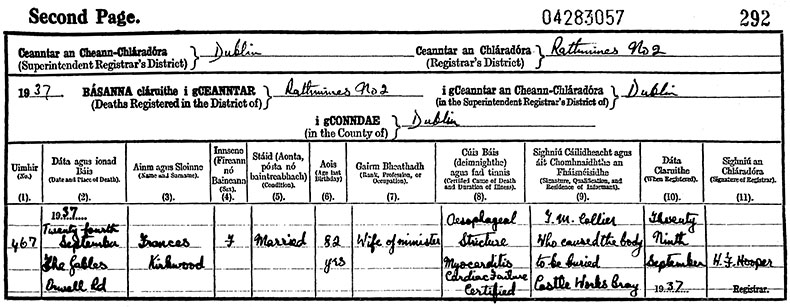 Second Page. 04283057 292
Ceanntar an Cheann-Chláradóra Dublin Ceanntar an Chláradóra Rathmines No 2
(Superintendent Registrar's District) (Registrar's District)
1937 BÁSANNA cláruithe i gCEANNTAR Rathmines No 2 i gCeanntar an Cheann-Chláradóra Dublin
(Deaths Registered in the District of) (in the Superintendent Registrar's District of)
i gCONNDAE Dublin
(in the County of)
Uimhir
(No.)
(1).
Dáta agus ionad
Báis
(Date and Place of Death).
(2).
Ainm agus Sloinne
(Name and Surname).
(3).
Innseno
(Fireann
nó
Baineann
(Sex).
(4).
Stáid (Aonta,
pósta nó
baintreabhach)
(Condition).
(5).
Aois
(Age last
Birthday)
(6).
Gairm Bheathadh
(Rank, Profession, or
Occupation).
(7).
Cúis Báis
(deimhnighthe)
agus fad tinnis
(Certified Cause of Death
and Duration of Illness).
(8).
Sighniú Cáilidheacht agus
áit Chomhnaidhthe an
Fháisnéisidhe
(Signature, Qualification, and
Residence of Informant).
(9).
Dáta
Claruithe
(When Registered).
(10).
Sighniú an
Chláradóra
(Signature of Registrar).
(11).
467
1937
Twenty fourth
September
The Gables
Orwell Rd
Frances
Kirkwood
F
Married
82
yrs
Wife of minister
Oesophageal
Stricture
Myocarditis
Cardiac Failure
Certified
T. M. Collier
Who caused the body
to be buried
Castle Works Bray
Twenty
Ninth
September
1937
H. F. Hooper
Registrar.